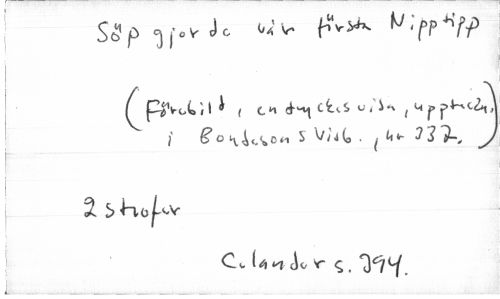 Söp gjorde vår första Nipptipp
(Förebild, en dryckesvisa, uppteckn.
i Bondesons Visb., nr 337.)
2 strofer
Celander s. 394.